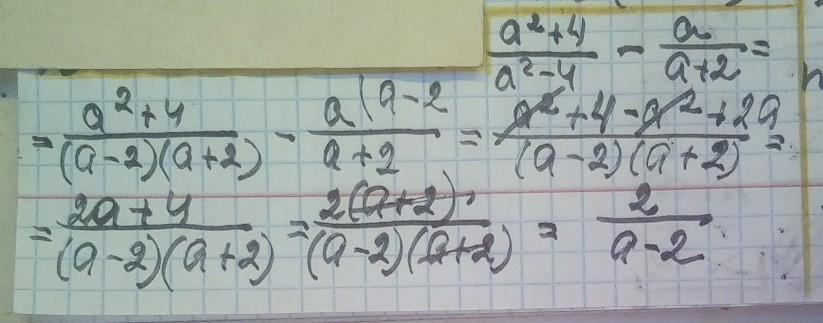 (a²+4)/(a²-4) - a/(a+2) =
= (a²+4)/((a-2)(a+2)) - a(a-2/(a+2) = (a²+4-a²+2a)/((a-2)(a+2)) =
= (2a+4)/((a-2)(a+2)) = 2(a+2)/((a-2)(a+2)) = 2/(a-2)